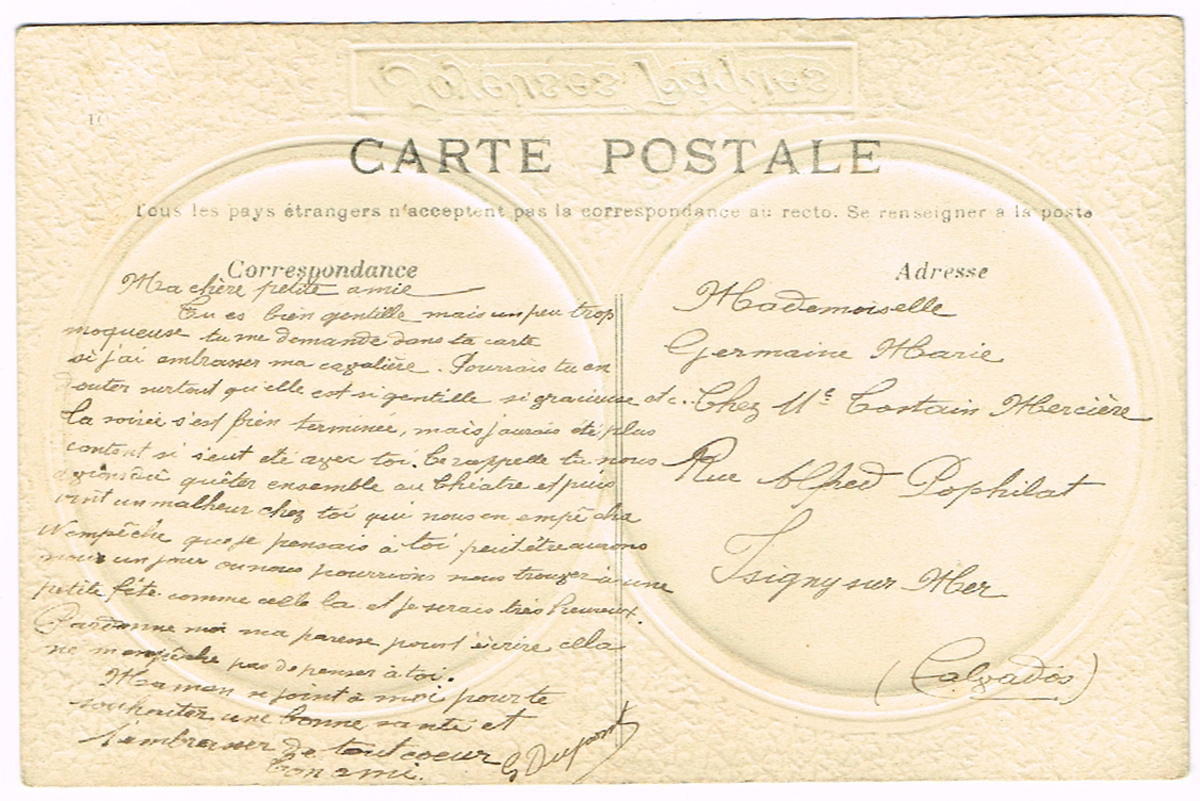 Joyeuses Pâques
10
CARTE POSTALE
Tous les pays étrangers n'acceptent pas la correspondance au recto. Se renseigner à la poste
Correspondance
Ma chère petite amie
Tu es bien gentille mais un peu trop
moqueuse tu me demande dans ta carte
si j'ai embrasser ma cavalière. Pourrais tu en
douter surtout qu'elle est si gentille si gracieuse etc..
La soirée s'est bien terminée, mais j'aurais été plus
content si s'eut été avec toi. Te rappelle tu nous
avions dû quêter ensemble au théatre et puis
vint un malheur chez toi qui nous en empêcha
N'empêche que je pensais à toi peut être aurons
nous un jour ou nous pourrions nous trouver à une
petite fête comme celle la et je serais très heureux.
Pardonne moi ma paresse pour t'écrire cella
ne m'empêche pas de penser à toi.
Maman se joint à moi pour te
souhaiter une bonne santé et
t'embrasser de tout coeur
Ton ami. G Dupont
Adresse
Mademoiselle
Germaine Marie
Chez Mе Costain Mercière
Rue Alfred Pophilat
Isigny sur Mer
(Calvados)